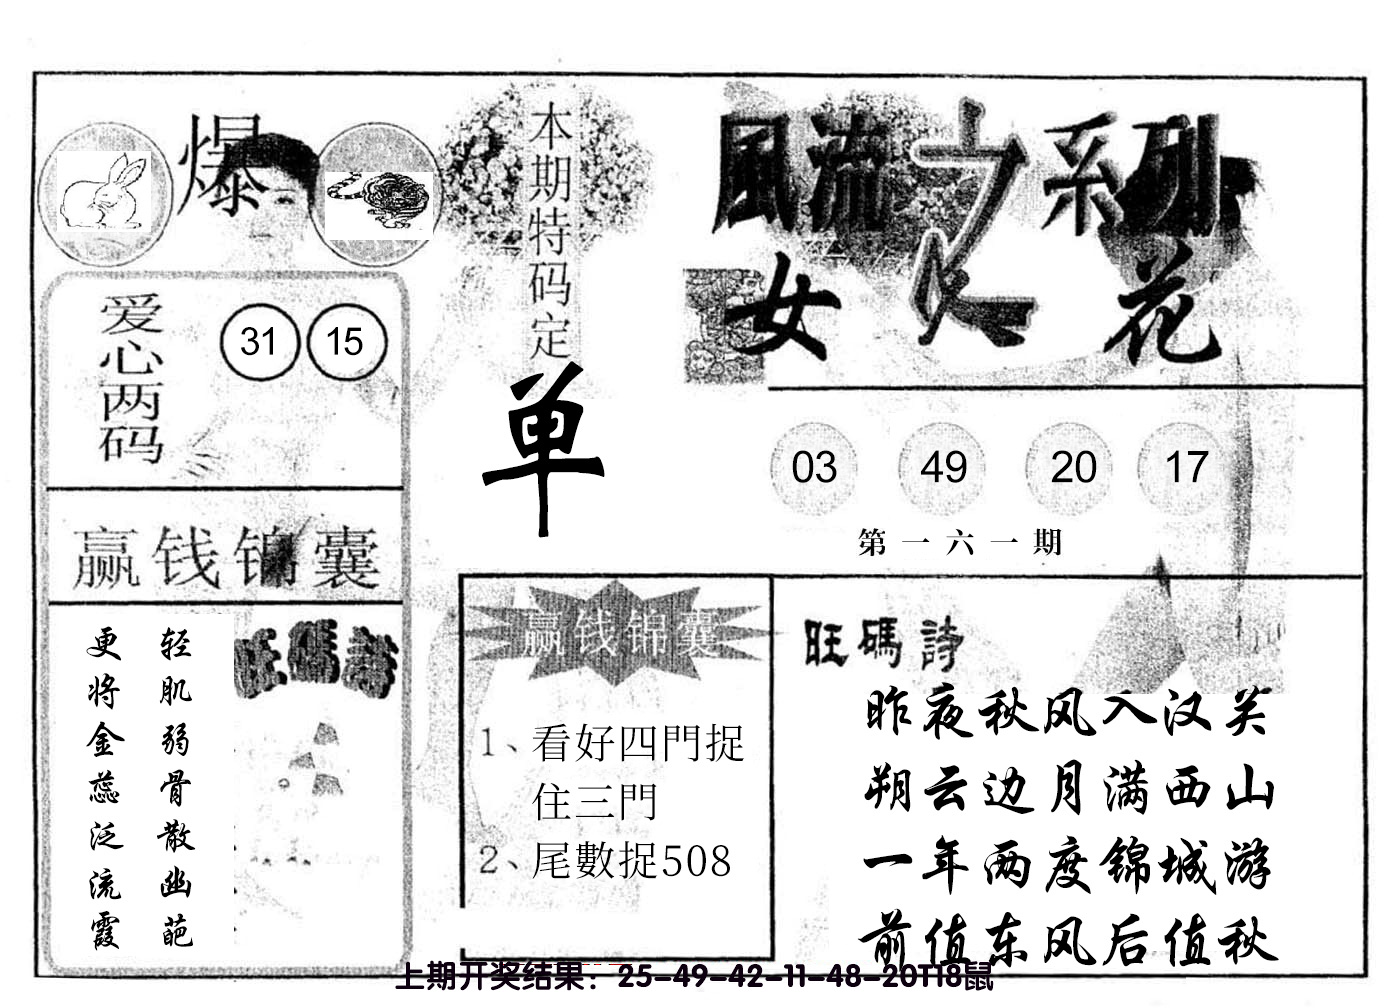 爆
本期特码定
单
風流之系列
女人花
爱心两码
31 15
03 49 20 17
第一六一期
赢钱锦囊
轻肌弱骨散幽葩
更将金蕊泛流霞
旺碼詩
赢钱锦囊
1、看好四門捉
住三門
2、尾數捉508
旺碼詩
昨夜秋风入汉关
朔云边月满西山
一年两度锦城游
前值东风后值秋
上期开奖结果：25-49-42-11-48-20T18鼠